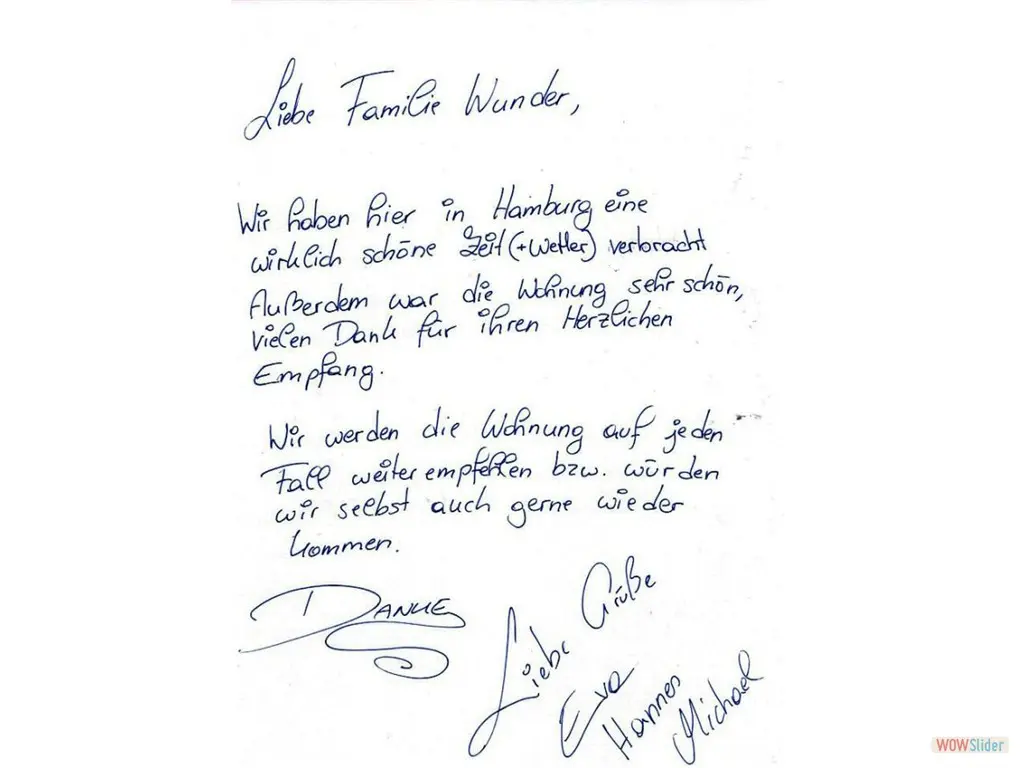 Liebe Familie Wunder,
Wir haben hier in Hamburg eine
wirklich schöne Zeit (+Wetter) verbracht
Außerdem war die Wohnung sehr schön,
vielen Dank für ihren Herzlichen
Empfang.
Wir werden die Wohnung auf jeden
Fall weiterempfehlen bzw. würden
wir selbst auch gerne wieder
kommen.
DANKE
Liebe Grüße
Eva
Hannes
Michael
WOWSlider